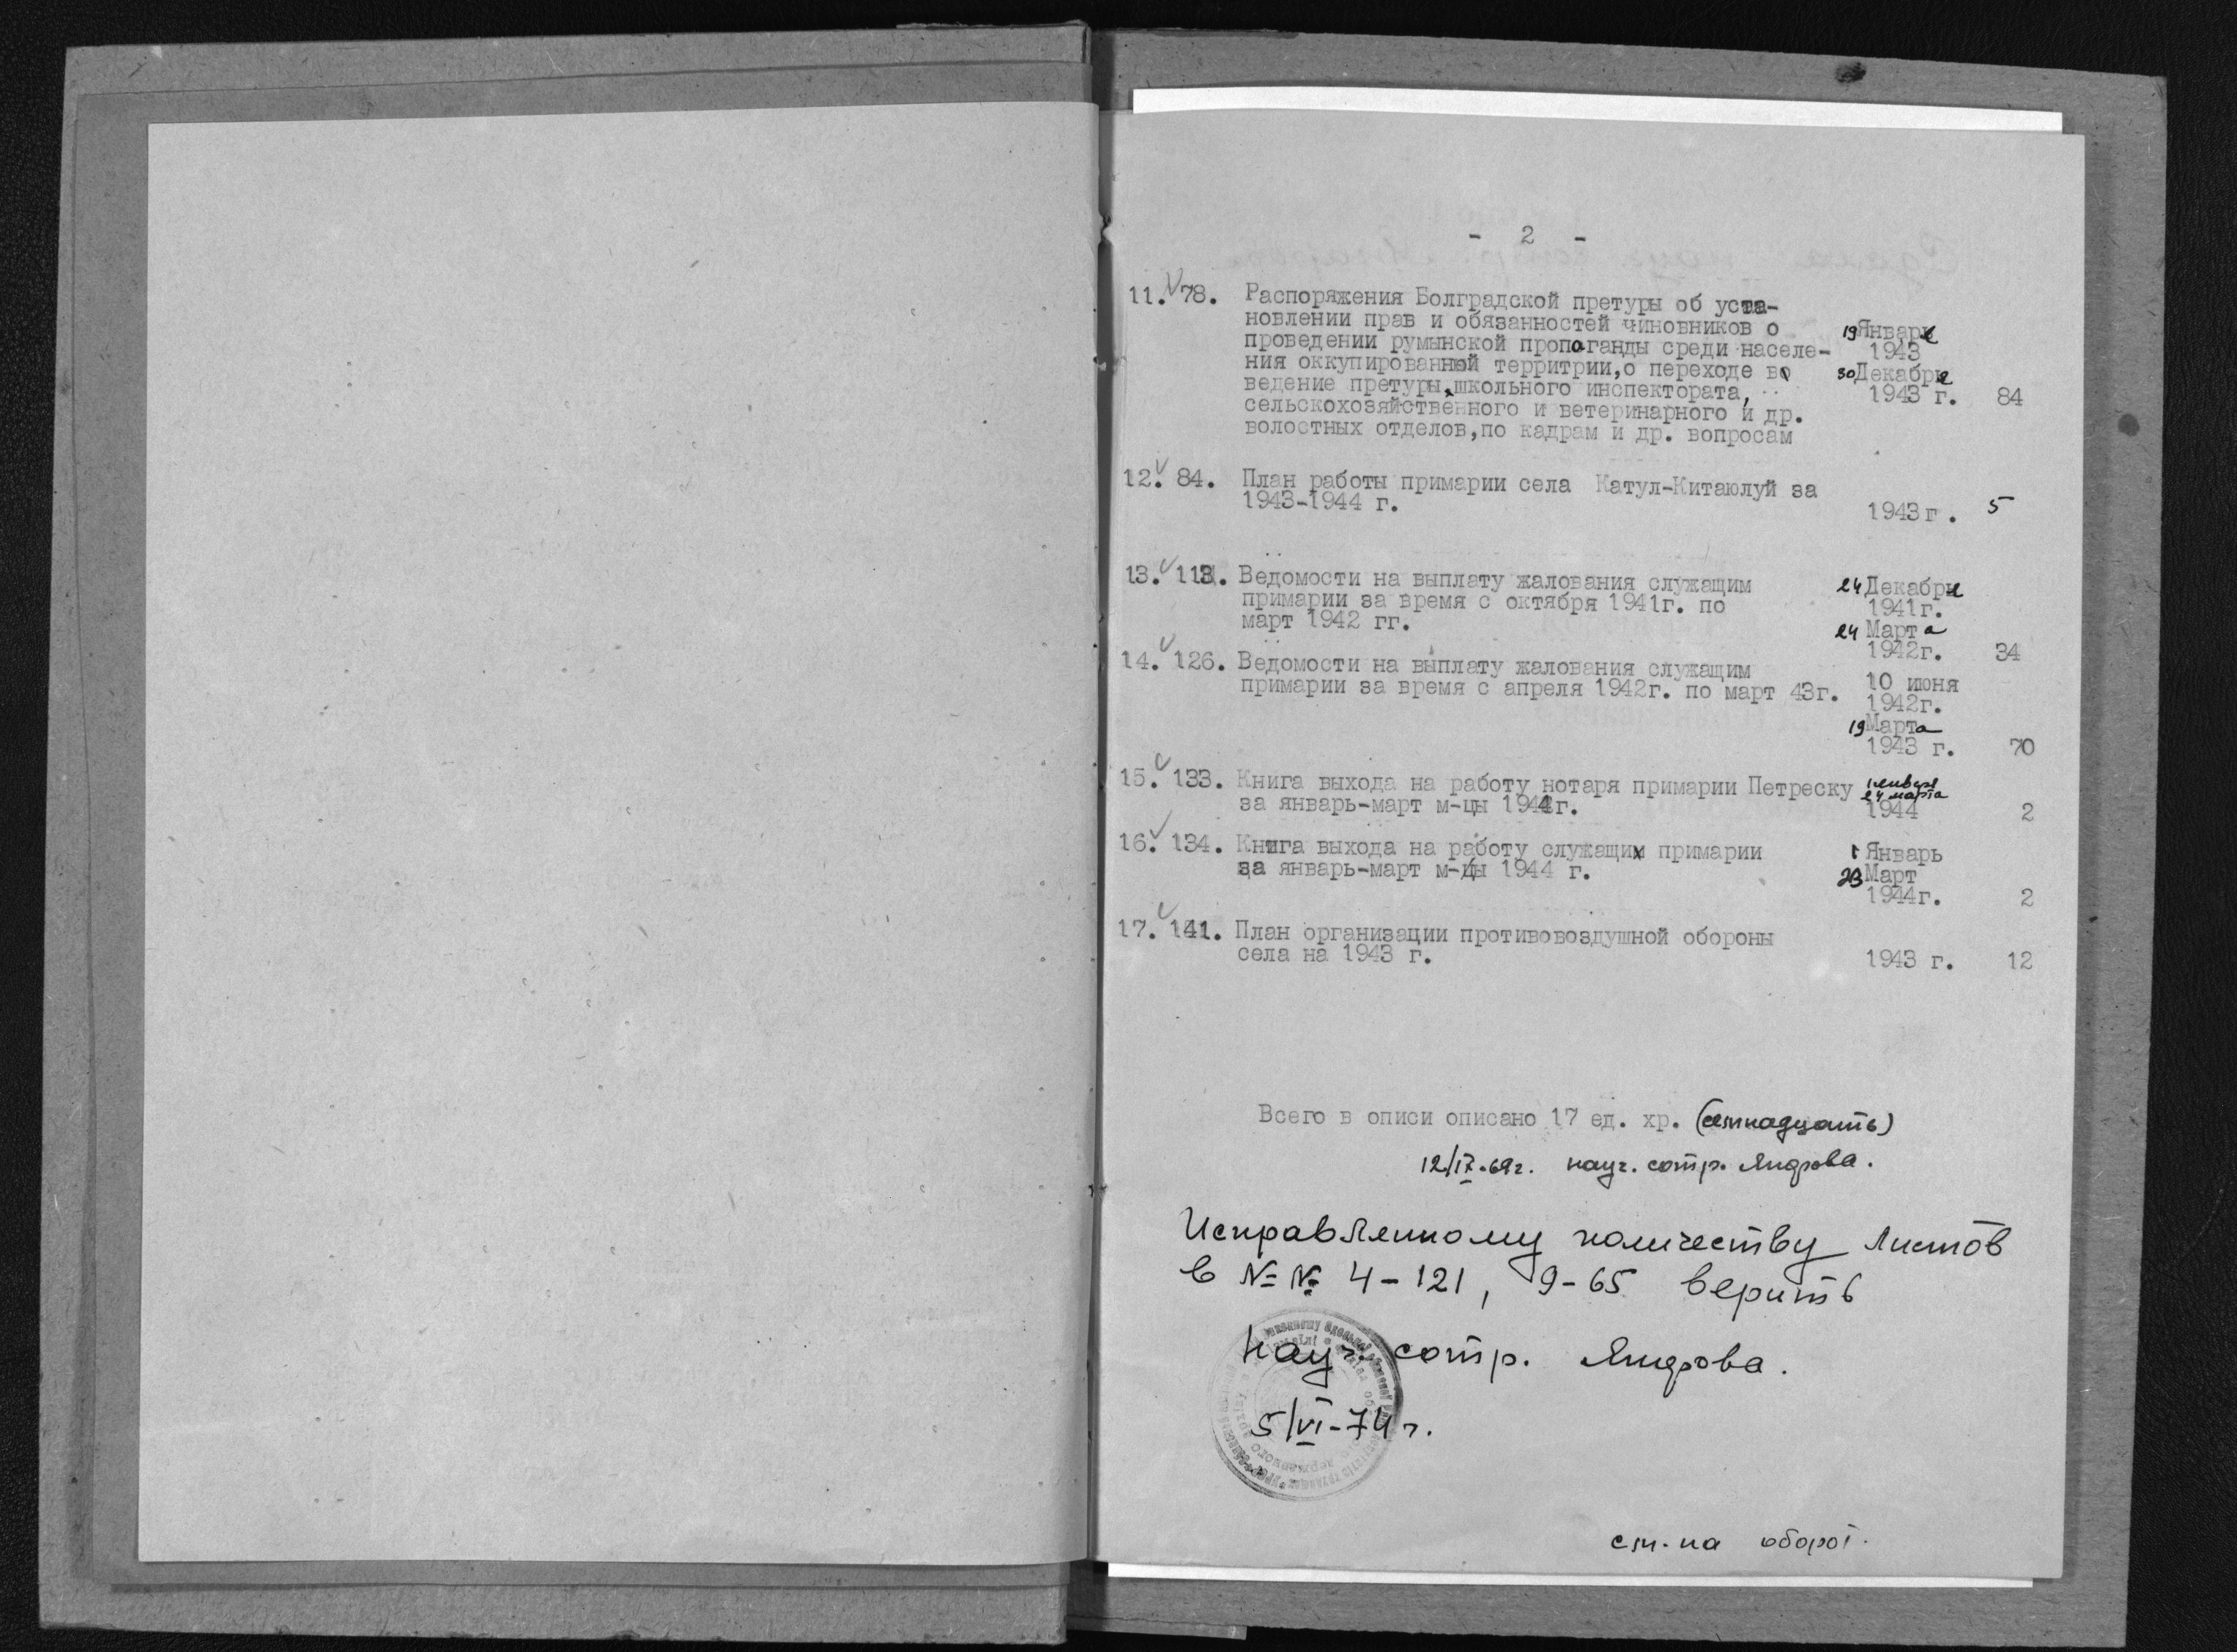 - 2 -
11. 78. Распоряжения Болградской претуры об уста-
новлении прав и обязанностей чиновников о
проведении румынской пропаганды среди населе-
ния оккупированной территрии,о переходе во
ведение претуры школьного инспектората,
сельскохозяйственного и ветеринарного и др.
волостных отделов,по кадрам и др. вопросам
19 Января
1943
30 Декабря
1943 г. 84
12. 84. План работы примарии села Катул-Китаюлуй за
1943-1944 г.
1943г. 5
13. 113. Ведомости на выплату жалования служащим
примарии за время с октября 1941г. по
март 1942 гг.
24 Декабря
1941г.
24 Марта
1942г. 34
14. 126. Ведомости на выплату жалования служащим
примарии за время с апреля 1942г. по март 43г.
10 июня
1942г.
19 Марта
1943 г. 70
15. 133. Книга выхода на работу нотаря примарии Петреску
за январь-март м-цы 1944г.
1 января
24 марта
1944 2
16. 134. Книга выхода на работу служащих примарии
за январь-март м-цы 1944 г.
1 Январь
23 Март
1944г. 2
17. 141. План организации противовоздушной обороны
села на 1943 г.
1943 г. 12
Всего в описи описано 17 ед. хр. (семнадцать)
12/IV-69г. науч. сотр. Яндрова.
Исправленному количеству листов
в №№ 4-121, 9-65 верить
Науч. сотр. Яндрова.
5/VI-74 г.
см. на оборот.